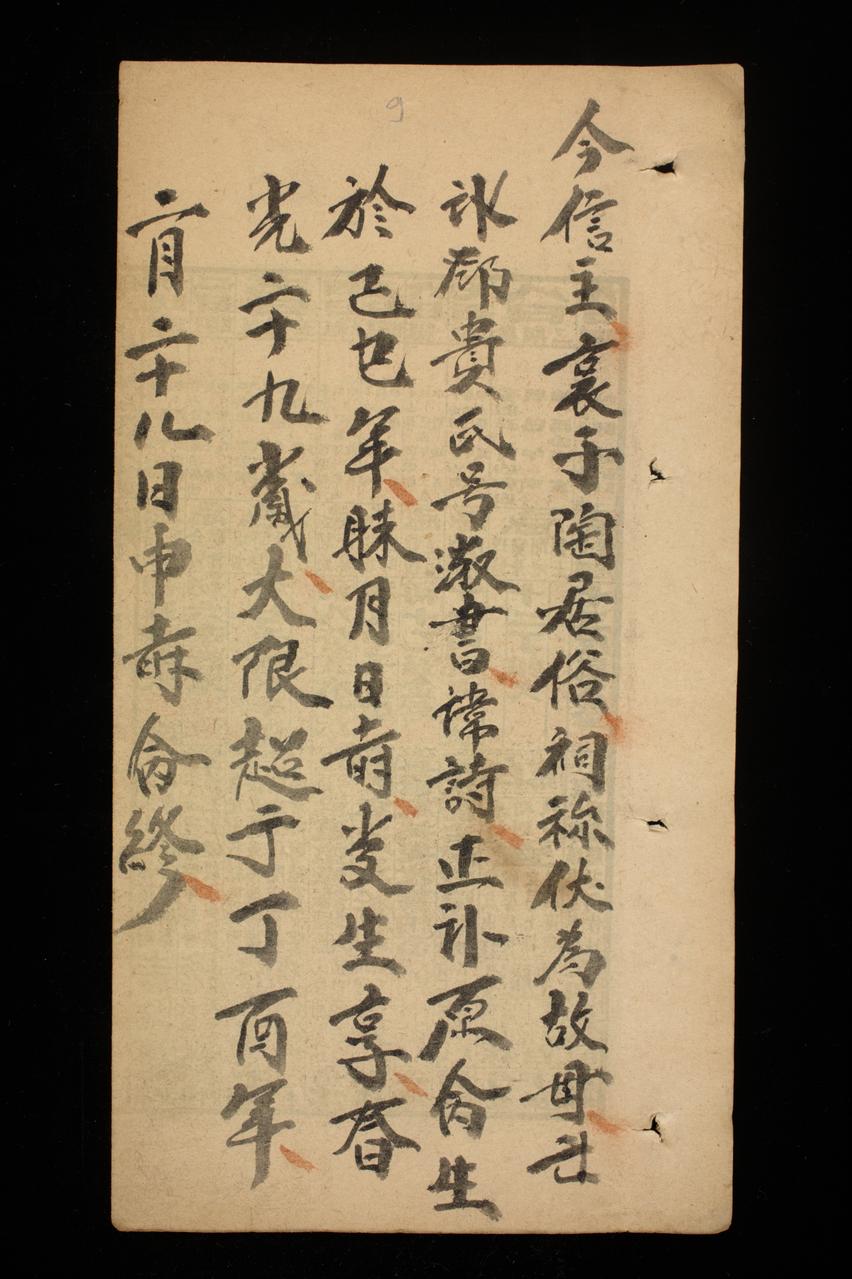 今信主哀子陶居俗祠祢伏為故母亡
貴氏号淑書諱詩正补原命生
於己巳年昧月日時受生享春
光二十九歲大限超于丁酉年
二月二十八日申時命終
9